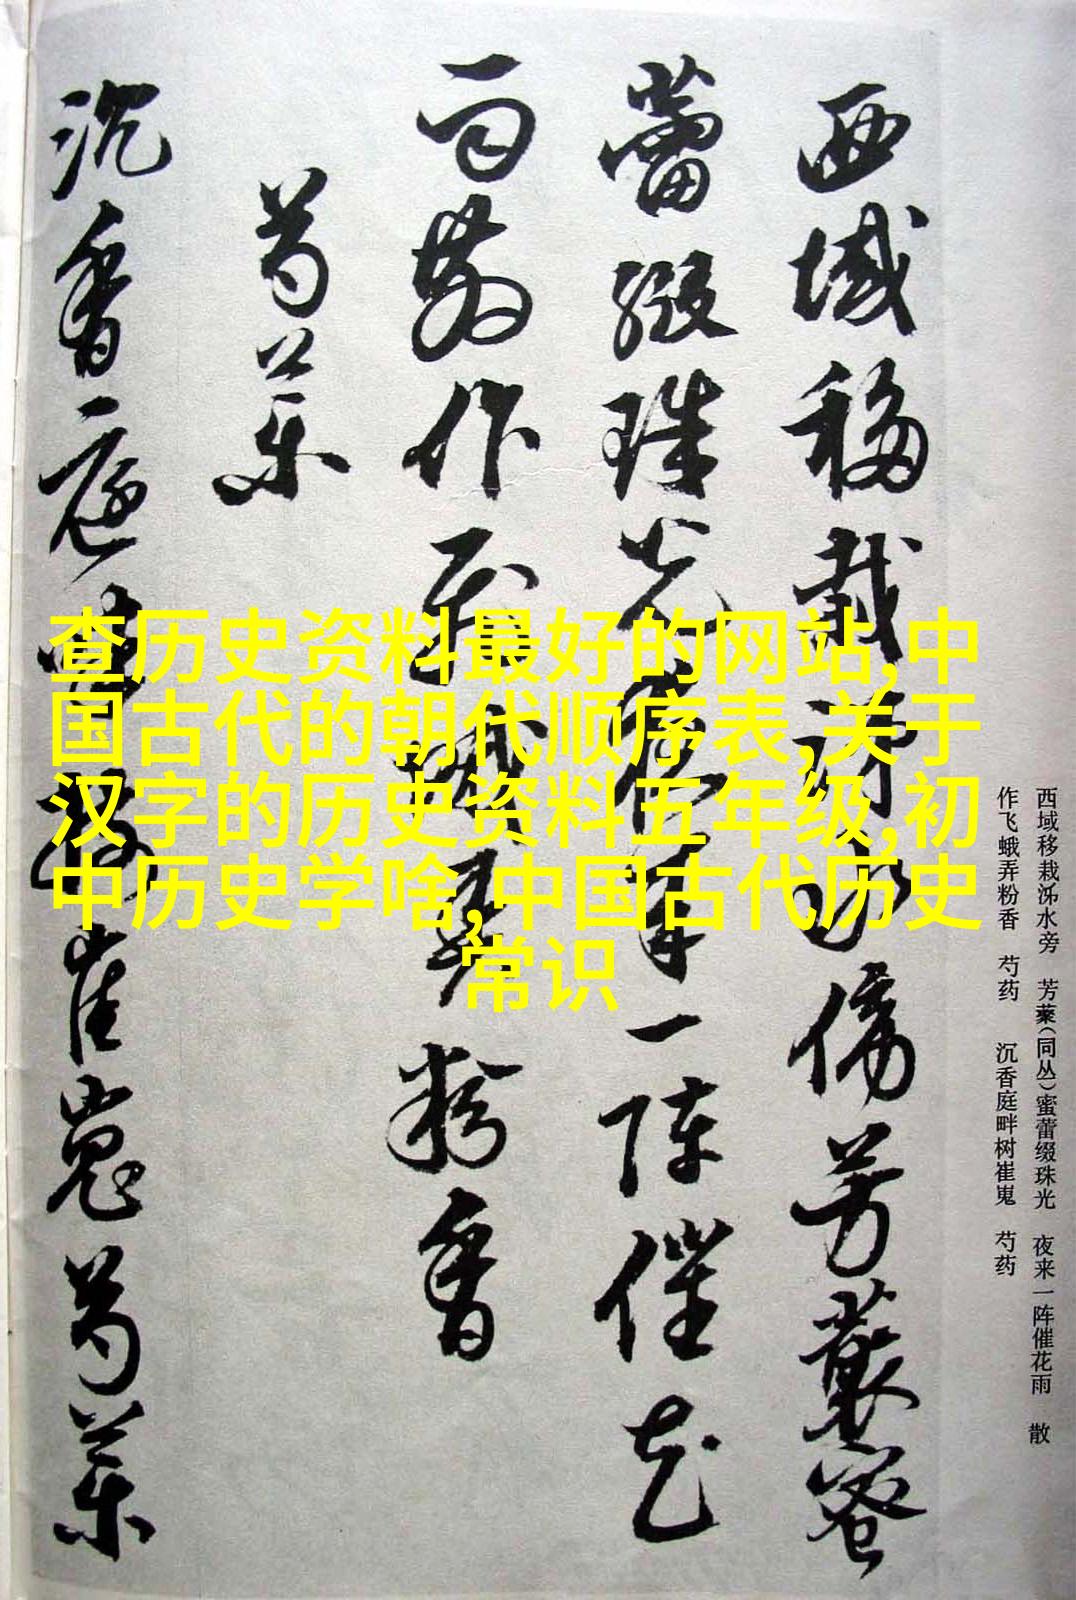 西域移栽泲水旁 芳藂(同丛)蜜蕾缀珠光 夜来一阵催花雨 散
作飞蛾弄粉香 芍药 沉香庭畔树崔嵬 芍药
西域移栽泲水傍芳藂蜜
蕾缀珠光夜来一阵催花
雨散作飞蛾弄粉香
芍药
沉香庭畔树崔嵬芍药
查历史资料最好的网站,中
国古代的朝代顺序表,关于
汉字的历史资料五年级,初
中历史学啥,中国古代历史
常识